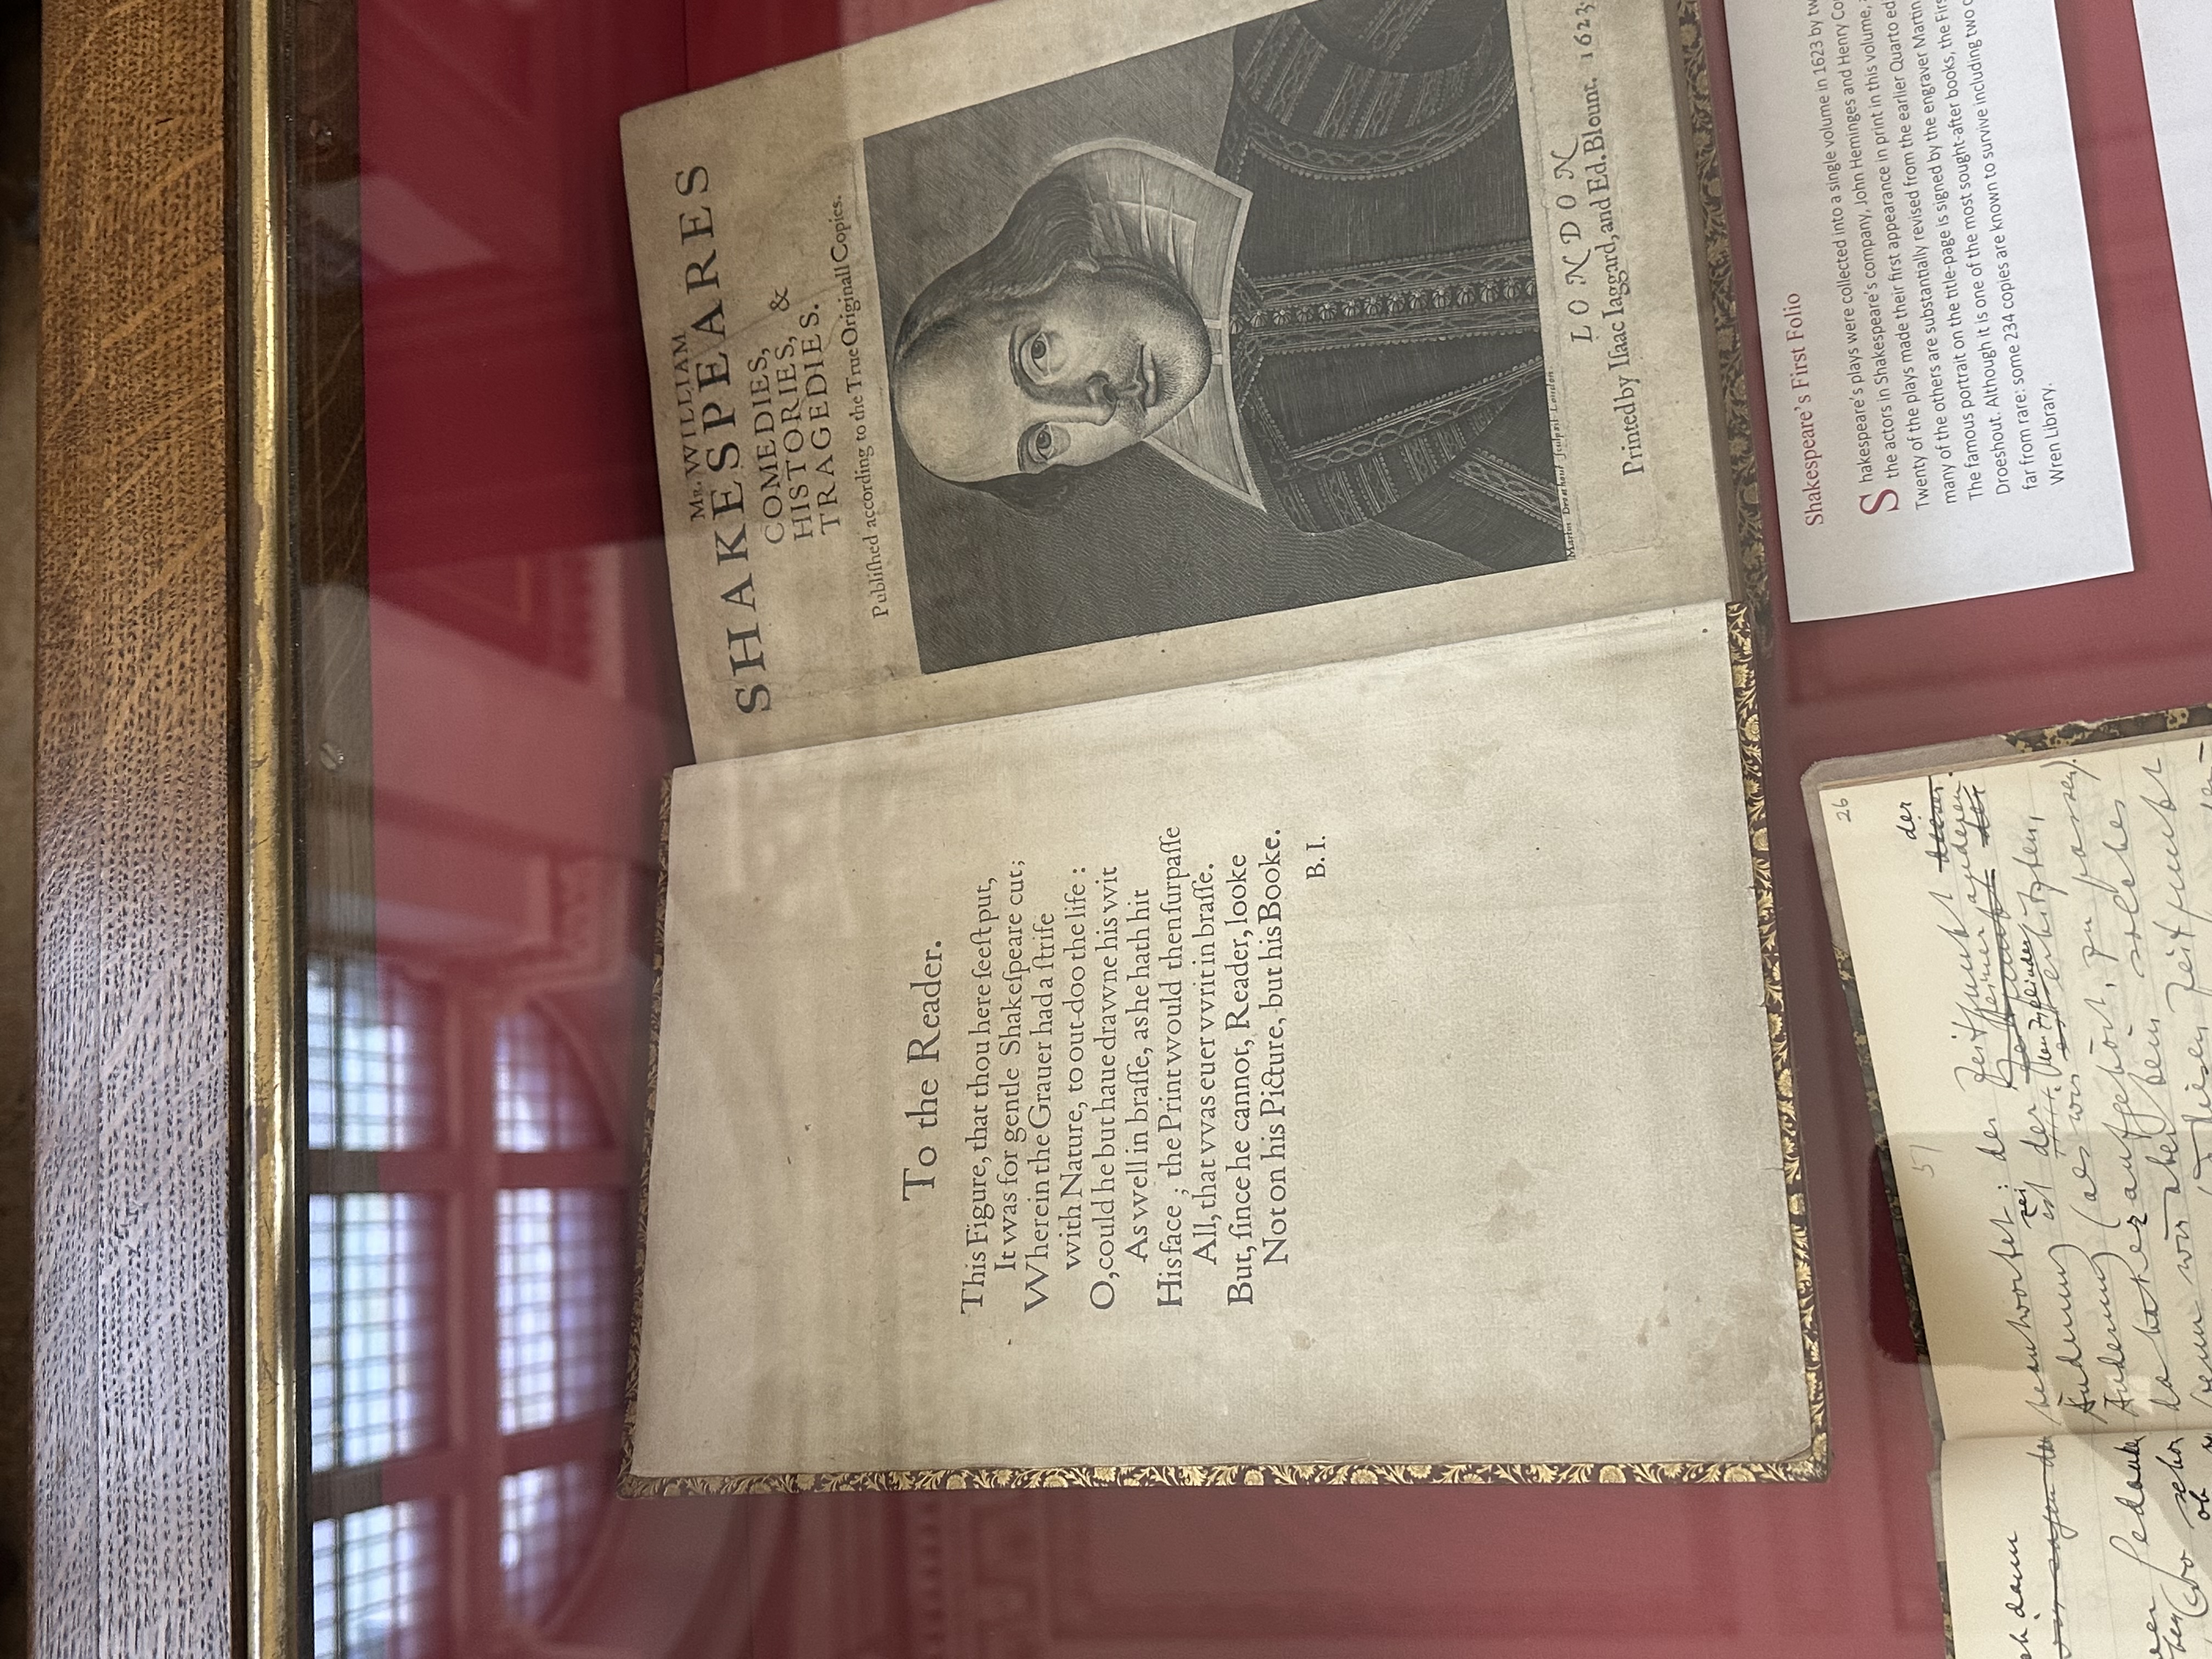 To the Reader.
This Figure, that thou here ſeeſt put,
It vvas for gentle Shakeſpeare cut;
Wherein the Grauer had a ſtrife
vvith Nature, to out-doo the life :
O, could he but haue dravvne his vvit
As vvell in braſſe, as he hath hit
His face ; the Print vvould then ſurpaſſe
All, that vvas euer vvrit in braſſe.
But, ſince he cannot, Reader, looke
Not on his Picture, but his Booke.
B. I.
Mr. WILLIAM
SHAKESPEARES
COMEDIES,
HISTORIES, &
TRAGEDIES.
Publiſhed according to the True Originall Copies.
Martin Droeshout ſculpſit London
LONDON
Printed by Iſaac Iaggard, and Ed. Blount. 1623.
Shakespeare's First Folio
Shakespeare's plays were collected into a single volume in 1623 by tw
the actors in Shakespeare's company, John Heminges and Henry Co
Twenty of the plays made their first appearance in print in this volume,
many of the others are substantially revised from the earlier Quarto ed
The famous portrait on the title-page is signed by the engraver Martin
Droeshout. Although it is one of the most sought-after books, the Firs
far from rare: some 234 copies are known to survive including two
Wren Library.
26
57
der
beantwortet: der Zeitpunkt
ist der
Änderung (als
Änderung heraufgehört, zu passen).
da
wenn wir diesen Zeitpunkt
dann